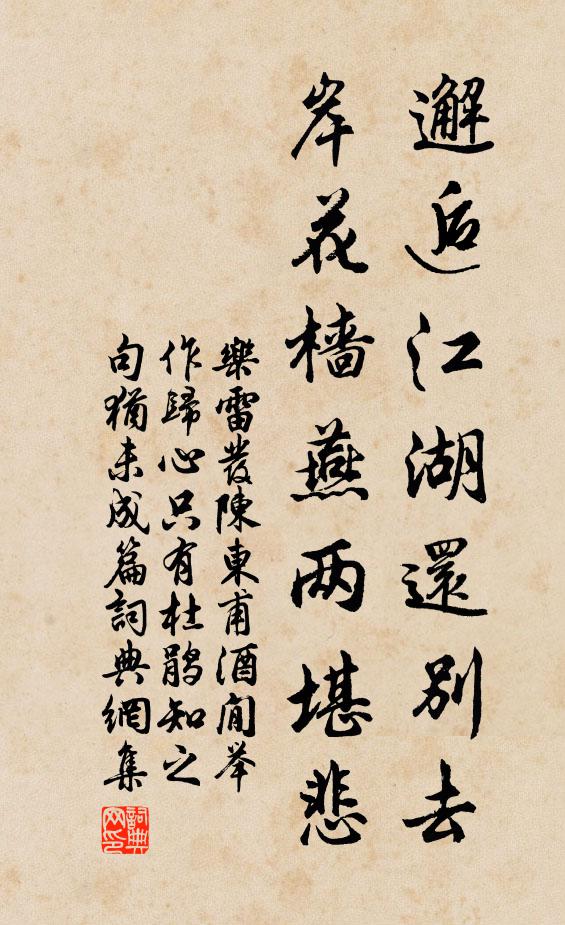 邂逅江湖還别去
岸花檣燕两堪悲
樂雷發陳東甫酒間举
作歸心只有杜鹃知之
句猶未成篇詞典網集
詞典
网印